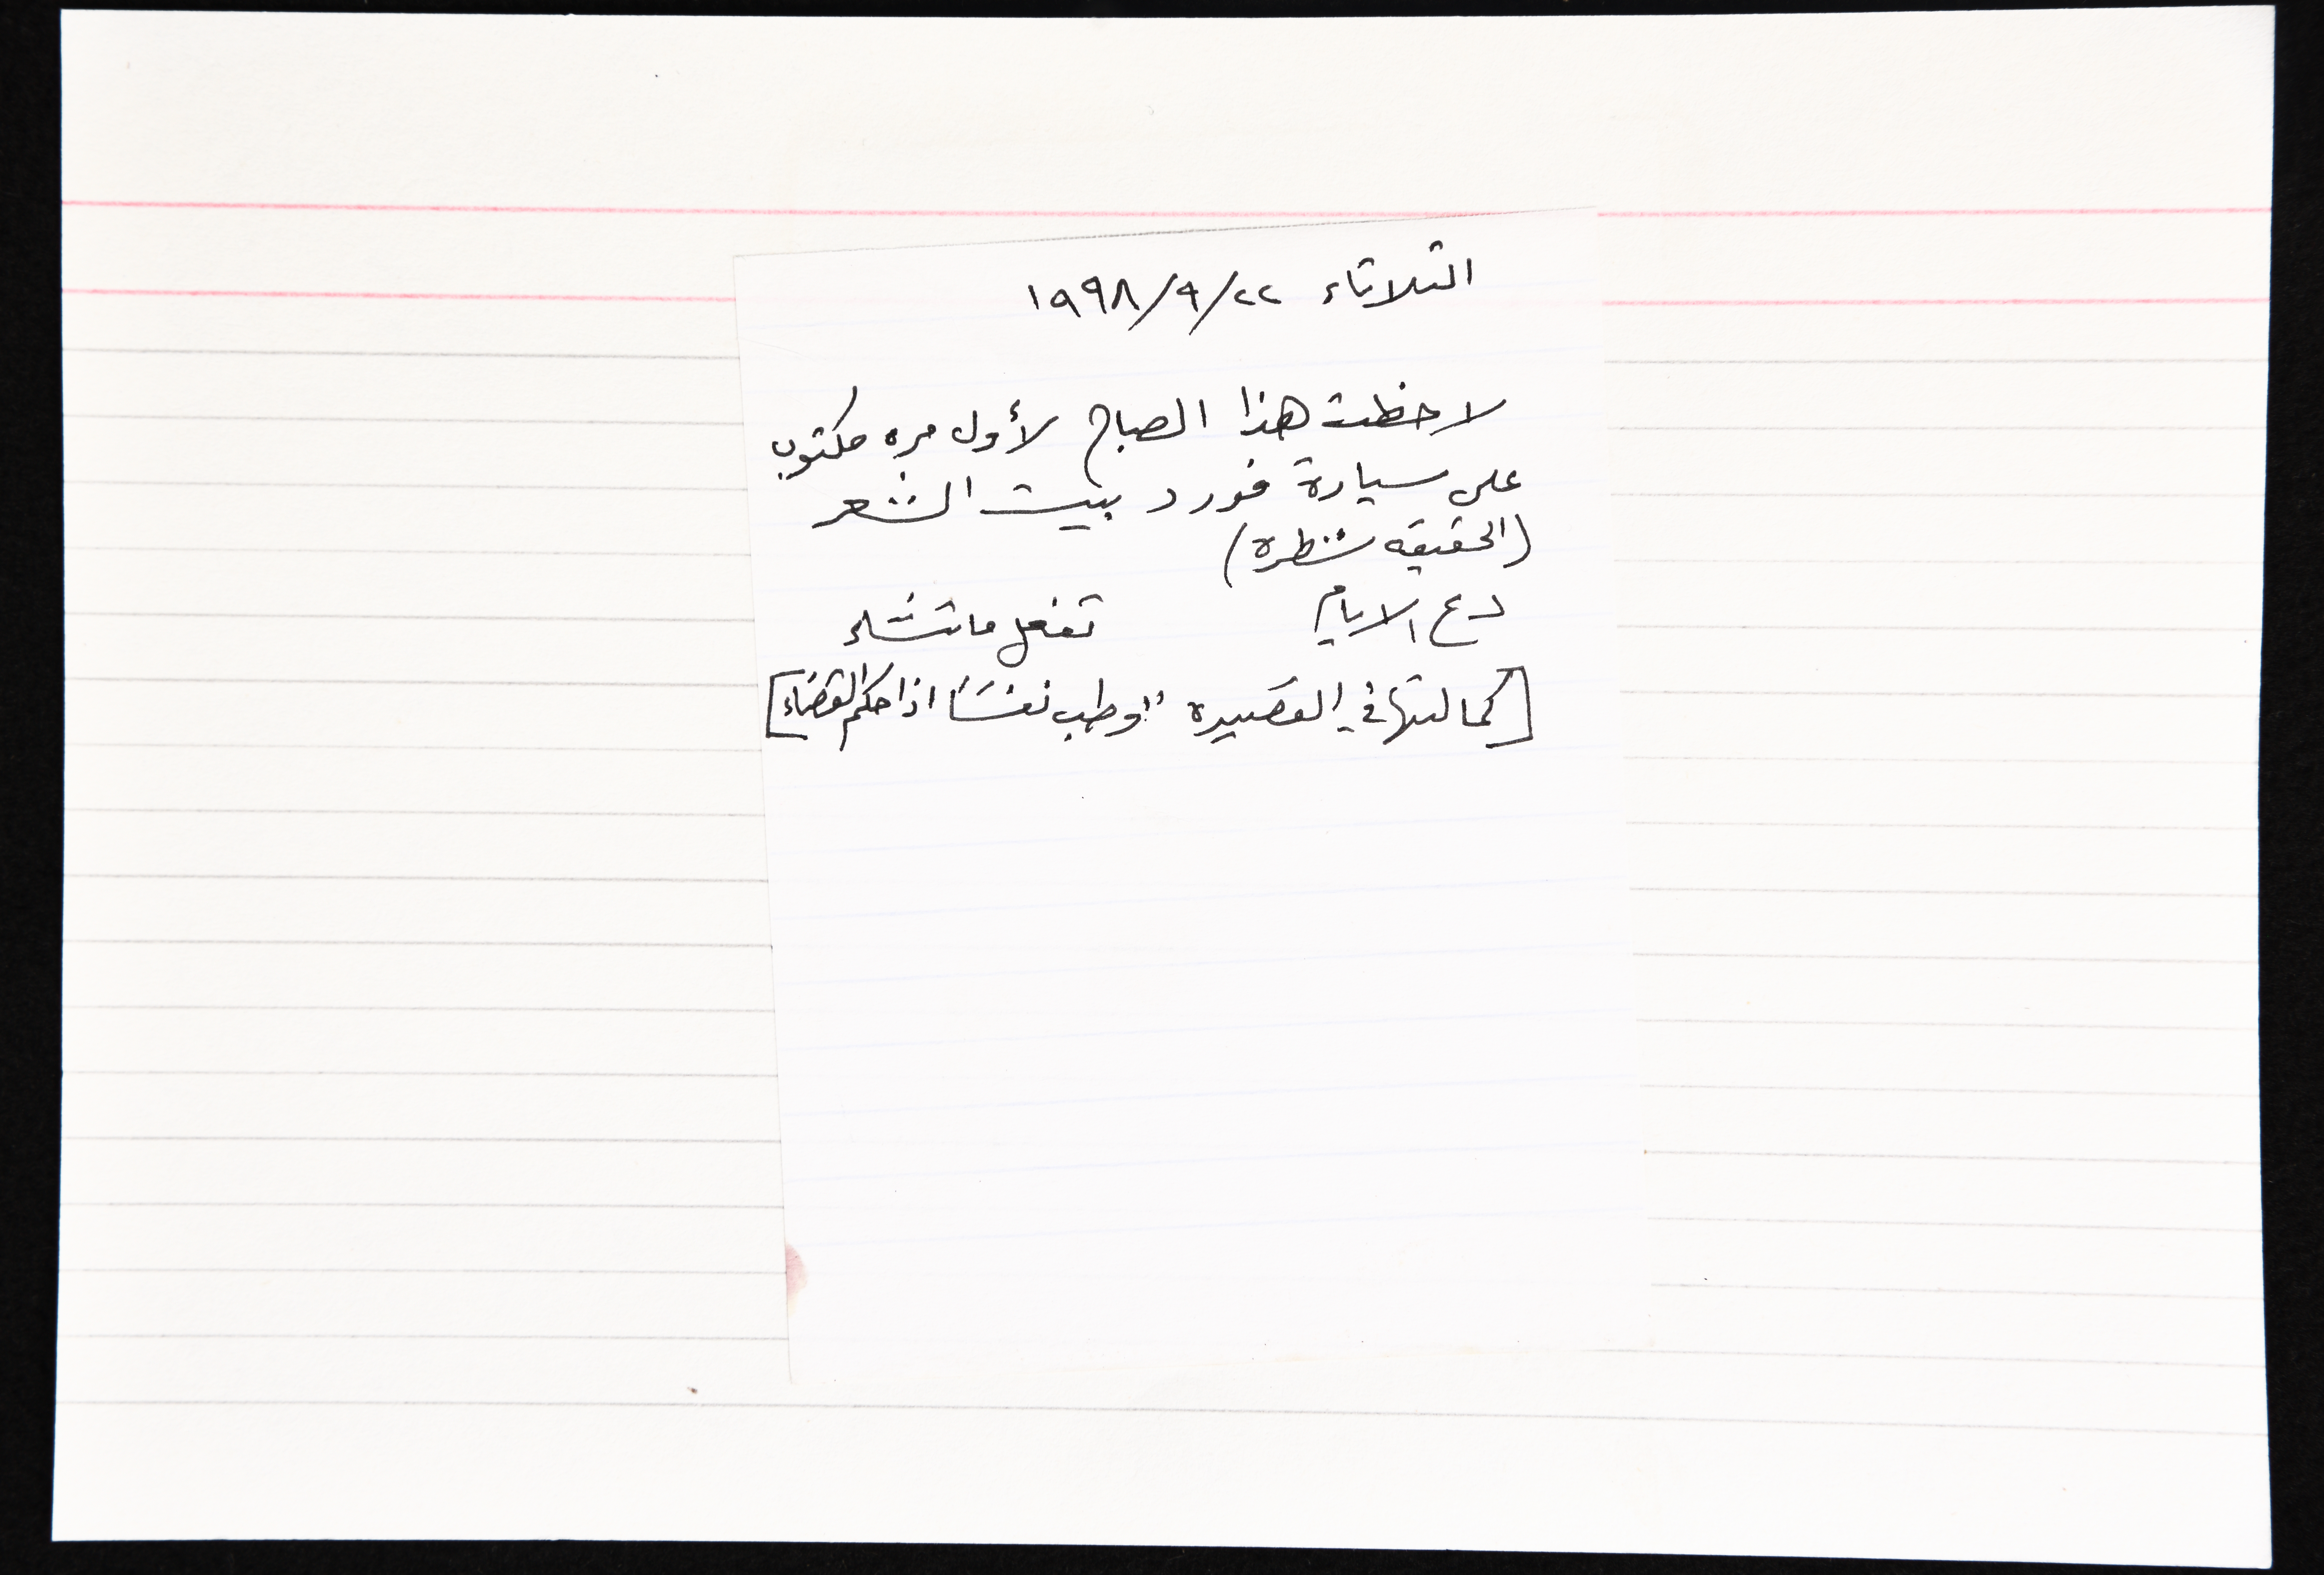 الثلاثاء ٢٢/٩/١٩٩٨
لاحظت هذا الصباح لأول مره مكتوب
على سيارة فورد بيت الشعر
(الحقيقه شطرة)
دع الايام تفعل ما تشاء
[كمالتها في القصيده "وطب نفسًا اذا حكم القضاء]